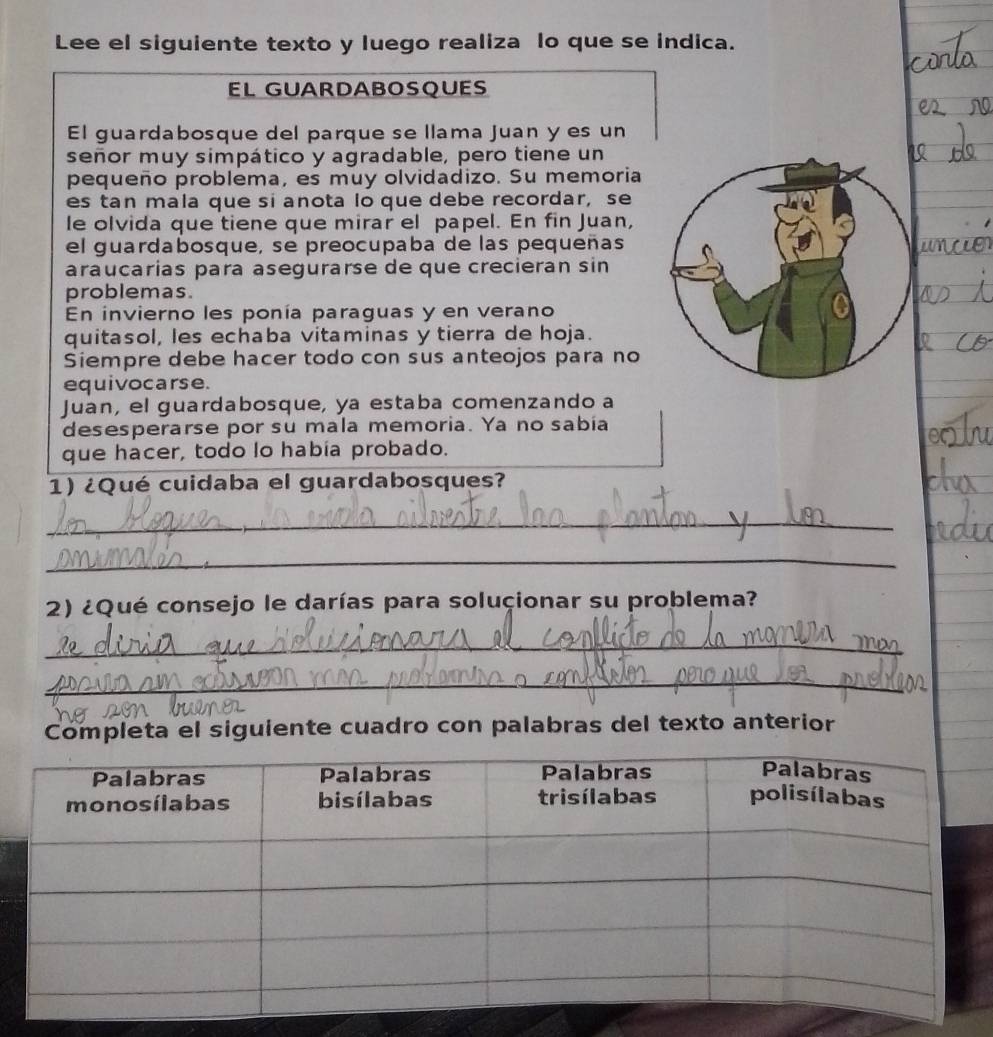 Lee el siguiente texto y luego realiza lo que se indica.
EL GUARDABOSQUES
El guardabosque del parque se llama Juan y es un
señor muy simpático y agradable, pero tiene un
pequeño problema, es muy olvidadizo. Su memoria
es tan mala que si anota lo que debe recordar, se
le olvida que tiene que mirar el papel. En fin Juan,
el guardabosque, se preocupaba de las pequeñas
araucarias para asegurarse de que crecieran sin
problemas.
En invierno les ponía paraguas y en verano
quitasol, les echaba vitaminas y tierra de hoja.
Siempre debe hacer todo con sus anteojos para no
equivocarse.
Juan, el guardabosque, ya estaba comenzando a
desesperarse por su mala memoria. Ya no sabía
que hacer, todo lo había probado.
1) ¿Qué cuidaba el guardabosques?
los bloques, silvestre las plantas y los
animales.
2) ¿Qué consejo le darías para solucionar su problema?
le diria que solucionara el conflicto de la manera mas
mas problemas o conflictos pero que los
no son buenos
Completa el siguiente cuadro con palabras del texto anterior
Palabras monosílabas
Palabras bisílabas
Palabras trisílabas
Palabras polisílabas
conta